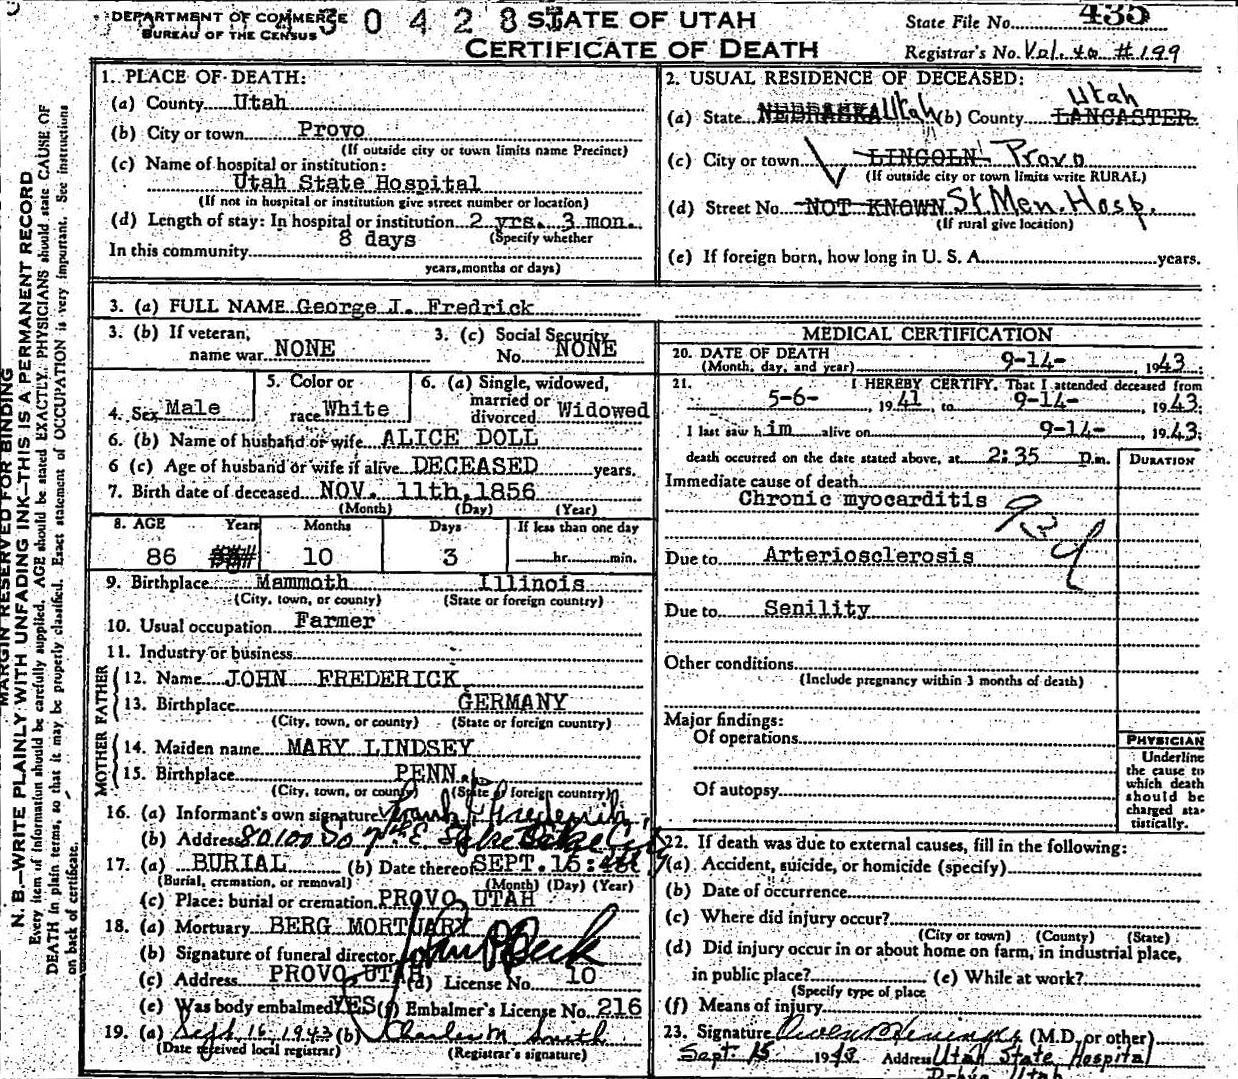 DEPARTMENT OF COMMERCE
BUREAU OF THE CENSUS
3 0 4 2 8
STATE OF UTAH
CERTIFICATE OF DEATH
State File No. 435
Registrar's No. Vol. 40 #199
1. PLACE OF DEATH:
(a) County Utah
(b) City or town Provo
(If outside city or town limits name Precinct)
(c) Name of hospital or institution:
Utah State Hospital
(If not in hospital or institution give street number or location)
(d) Length of stay: In hospital or institution 2 yrs. 3 mon.
8 days (Specify whether
In this community
years, months or days)
2. USUAL RESIDENCE OF DECEASED:
(a) State NEBRASKA Utah (b) County LANCASTER Utah
(c) City or town LINCOLN Provo
(If outside city or town limits write RURAL)
(d) Street No. NOT KNOWN St. Men. Hosp.
(If rural give location)
(e) If foreign born, how long in U. S. A. years.
3. (a) FULL NAME George J. Fredrick
3. (b) If veteran,
name war NONE
3. (c) Social Security
No. NONE
4. Sex Male
5. Color or
race White
6. (a) Single, widowed,
married or
divorced Widowed
6. (b) Name of husband or wife ALICE DOLL
6 (c) Age of husband or wife if alive DECEASED years.
7. Birth date of deceased NOV. 11th, 1856
(Month) (Day) (Year)
8. AGE Years Months Days If less than one day
86 10 3 hr. min.
9. Birthplace Mammoth Illinois
(City, town, or county) (State or foreign country)
10. Usual occupation Farmer
11. Industry or business
FATHER
12. Name JOHN FREDERICK
13. Birthplace GERMANY
(City, town, or county) (State or foreign country)
MOTHER
14. Maiden name MARY LINDSEY
15. Birthplace PENN.
(City, town, or county) (State or foreign country)
16. (a) Informant's own signature Frank J Frederick
(b) Address So 7th E Salt Lake City
17. (a) BURIAL (b) Date thereof SEPT. 16
(Burial, cremation, or removal) (Month) (Day) (Year)
(c) Place: burial or cremation PROVO UTAH
18. (a) Mortuary BERG MORTUARY
(b) Signature of funeral director
(c) Address PROVO, UTAH (d) License No. 10
(e) Was body embalmed YES (f) Embalmer's License No. 216
19. (a) Sept 16 1943 (b) Smith
(Date received local registrar) (Registrar's signature)
MEDICAL CERTIFICATION
20. DATE OF DEATH
(Month, day, and year) 9-14-, 1943
21. I HEREBY CERTIFY, That I attended deceased from
5-6-, 1941, to 9-14-, 1943;
I last saw him alive on 9-14-, 1943;
death occurred on the date stated above, at 2:35 p.m.
DURATION
Immediate cause of death
Chronic myocarditis
Due to Arteriosclerosis
Due to Senility
Other conditions
(Include pregnancy within 3 months of death)
Major findings:
Of operations
Of autopsy
PHYSICIAN
Underline
the cause to
which death
should be
charged sta-
tistically.
22. If death was due to external causes, fill in the following:
(a) Accident, suicide, or homicide (specify)
(b) Date of occurrence
(c) Where did injury occur?
(City or town) (County) (State)
(d) Did injury occur in or about home on farm, in industrial place,
in public place? (e) While at work?
(Specify type of place
(f) Means of injury
23. Signature (M.D. or other)
Sept. 15 1943 Address Utah State Hospital
Utah
MARGIN RESERVED FOR BINDING
N. B.—WRITE PLAINLY WITH UNFADING INK—THIS IS A PERMANENT RECORD
Every item of information should be carefully supplied. AGE should be stated EXACTLY. PHYSICIANS should state CAUSE OF
DEATH in plain terms, so that it may be properly classified. Exact statement of OCCUPATION is very important. See instructions
on back of certificate.